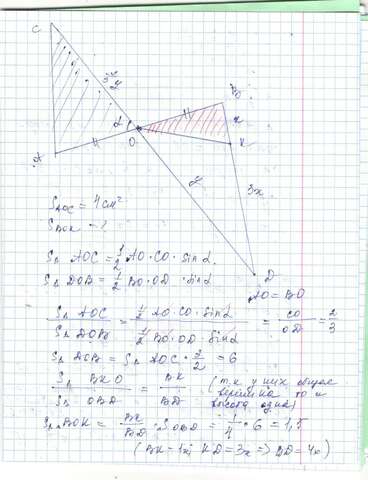 C
2/3 y
α
A
O
B
x
K
3x
y
D
S AOC = 4 см²
S BOK - ?
S△ AOC = 1/2 AO · CO · sin α
S△ DOB = 1/2 BO · OD · sin α
AO = BO
S△ AOC / S△ DOB = 1/2 AO · CO · sin α / 1/2 BO · OD · sin α = CO / OD = 2/3
S△ DOB = S△ AOC · 3/2 = 6
S△ BKO / S△ OBD = BK / BD (т.к у них общая вершина то и высота одна)
S△ BOK = BK / BD · S OBD = 1/4 · 6 = 1,5
(BK = 1x; KD = 3x => BD = 4x)